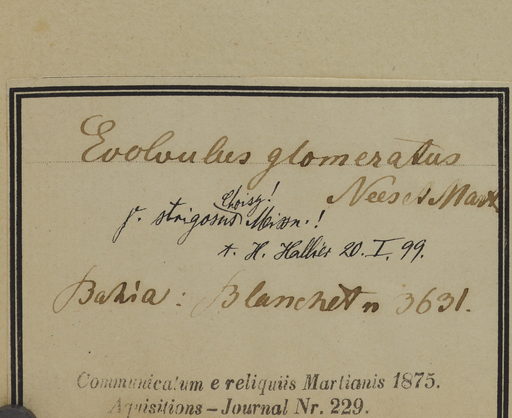 Evolvulus glomeratus
Nees et Mart
Choisy!
γ. strigosus Missn.!
t. H. Hallier 20. I. 99.
Bahia: Blanchet n 3631.
Communicatum e reliquiis Martianis 1875.
Aquisitions – Journal Nr. 229.